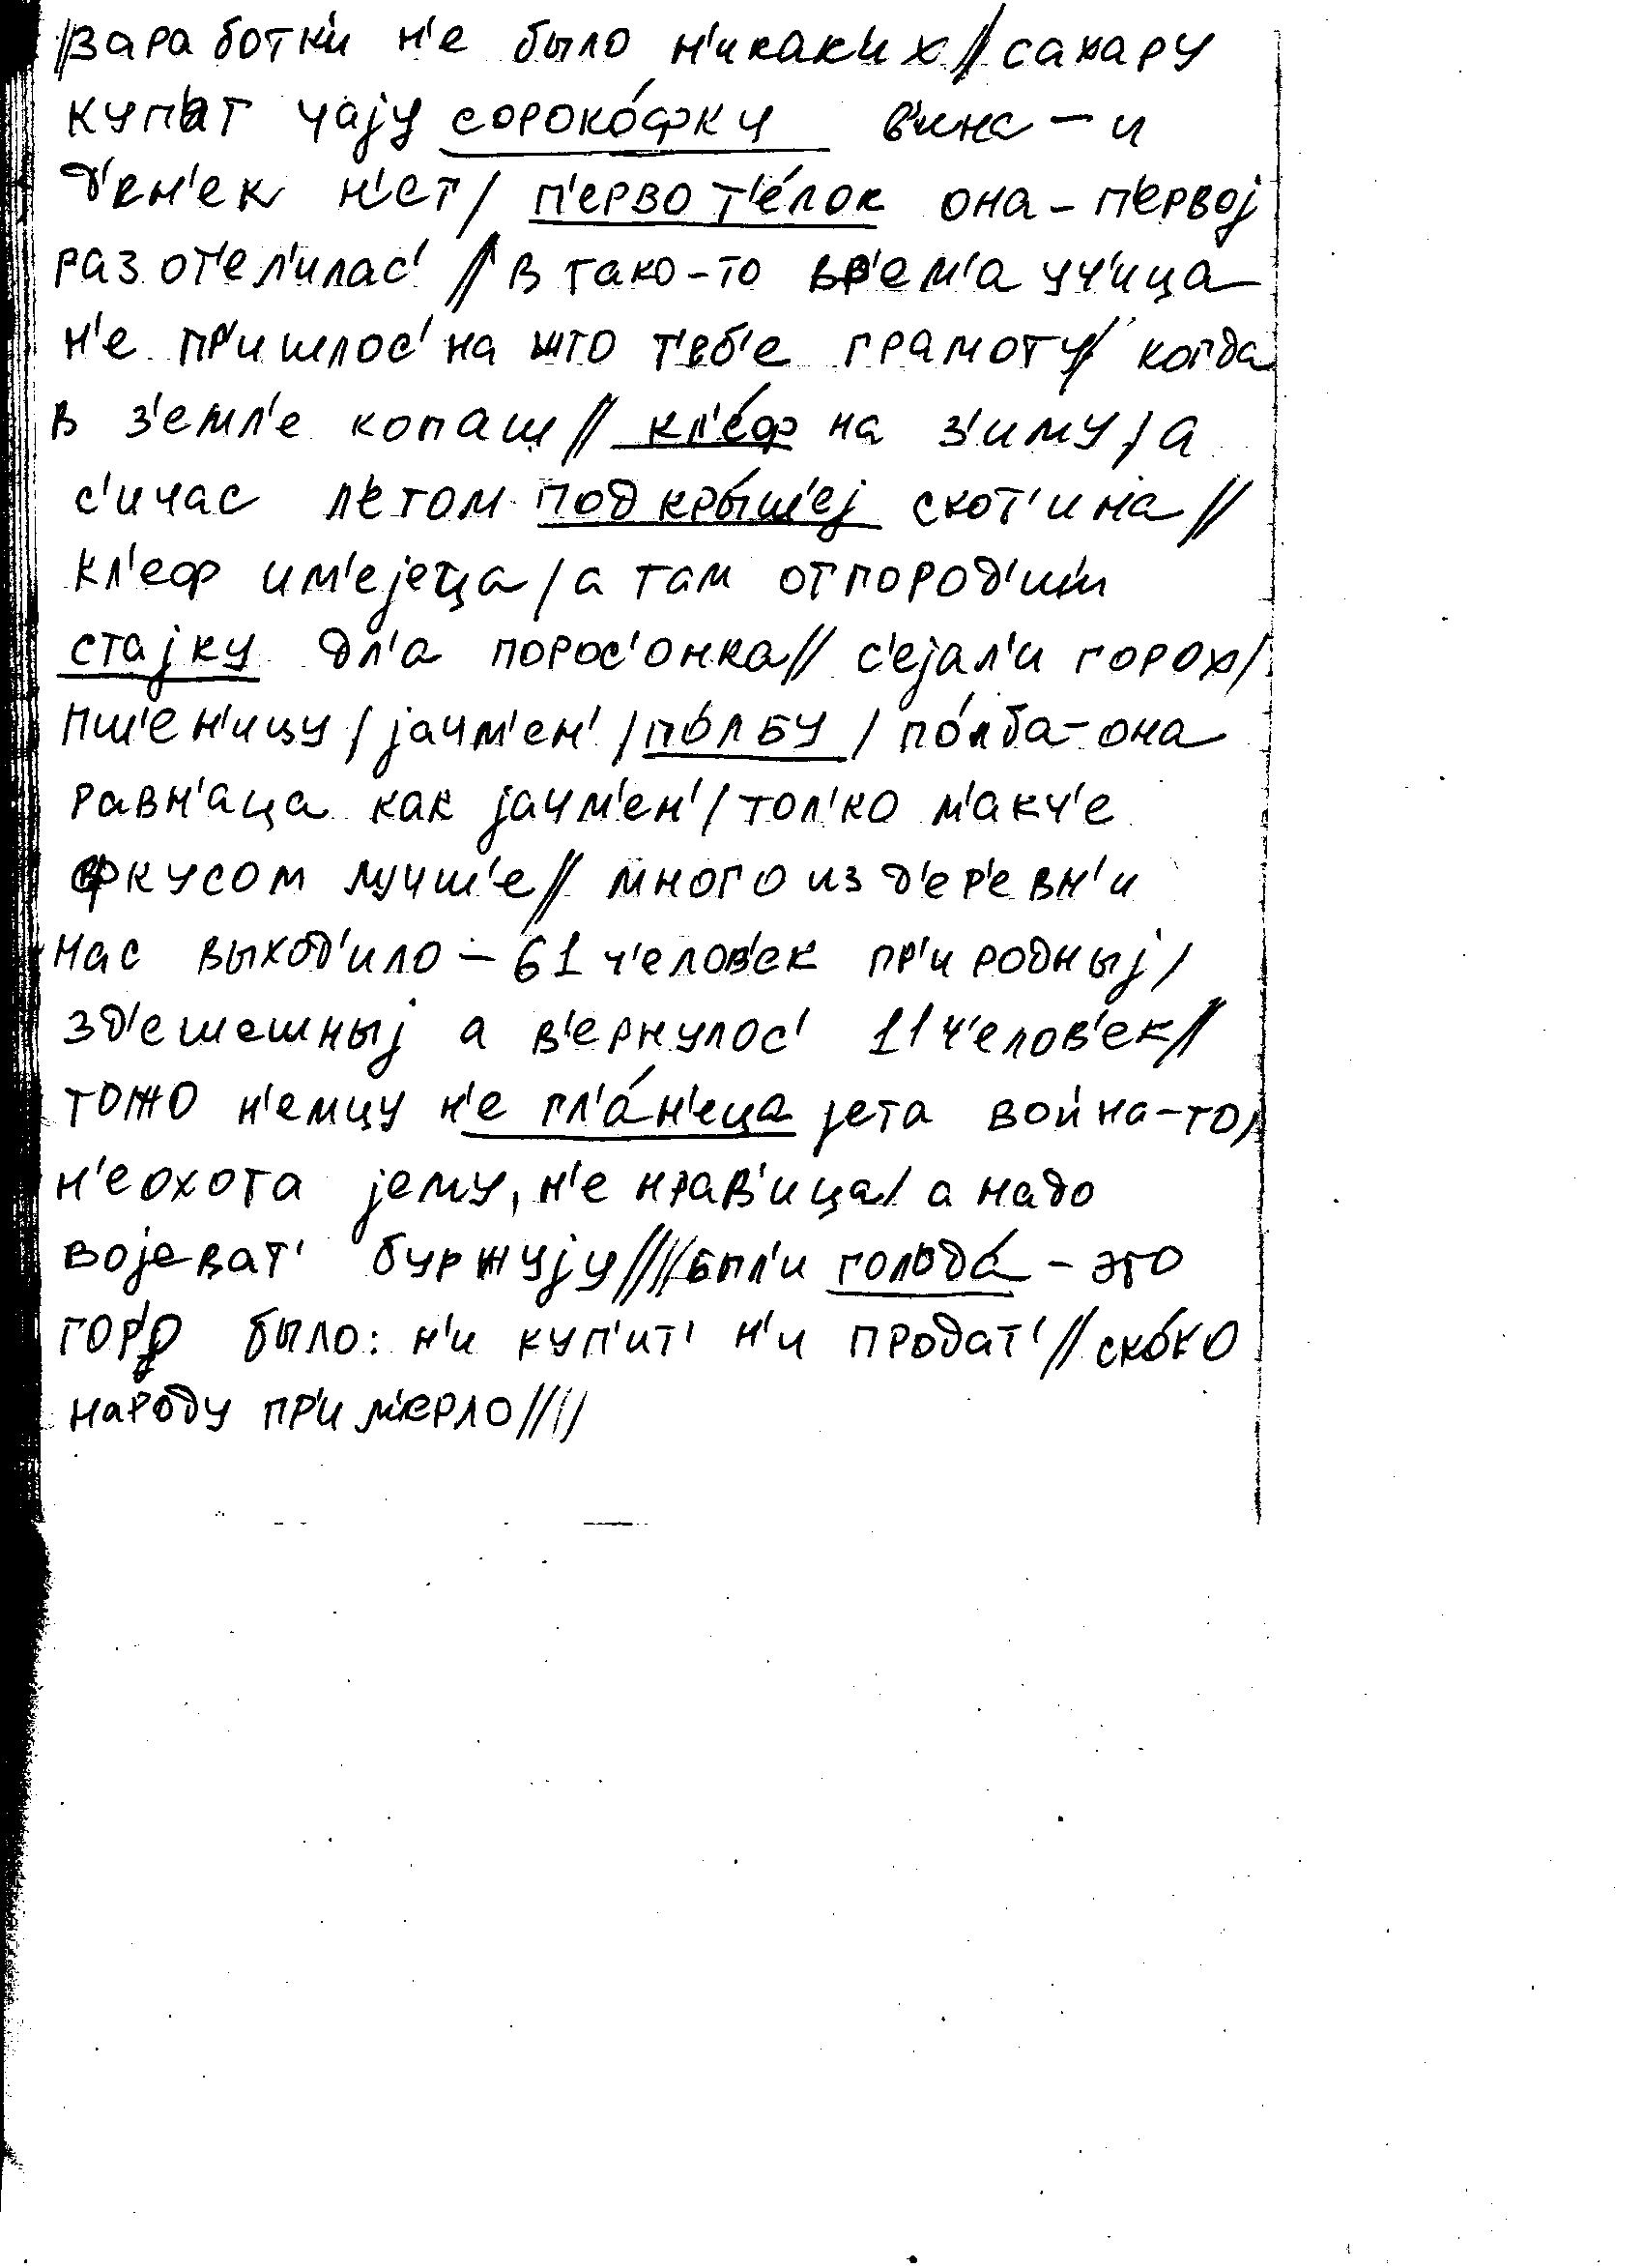 //заработк'и н'е было н'икак'их//сахару
куп'ат чају сороко́фку в'ина – и
д'ен'ек н'ет/ п'ервот'е́лок она – п'ервој
раз от'ел'илас' // в тако-то вр'ем'а уч'ица
н'е пр'ишлос' на што т'еб'е грамоту/ когда
в з'емл'е копаш// кл'е́ф на з'иму/а
с'ичас л'етом под кры́ш'еј скот'ина//
кл'еф им'ејетца/а там отпород'им
стајку дл'а порос'онка// с'ејал'и горох/
пш'ен'ицу/јачм'ен'/по́лбу/по́лба–она
равн'аца как јачм'ен'/тол'ко м'акч'е
фкусом лучш'е// много из д'ер'евн'и
нас выход'ило – 61 ч'елов'ек пр'иродныј/
зд'ешешныј а в'ернулос' 11 ч'елов'ек//
тожо н'емцу н'е гл'а́н'еца јета војна-то/
н'еохота јему, н'е нрав'ица/ а надо
војеват' буржују////был'и голода́ – это
гор'о было: н'и куп'ит' н'и продат'//ско́ко
народу пр'им'ерло////